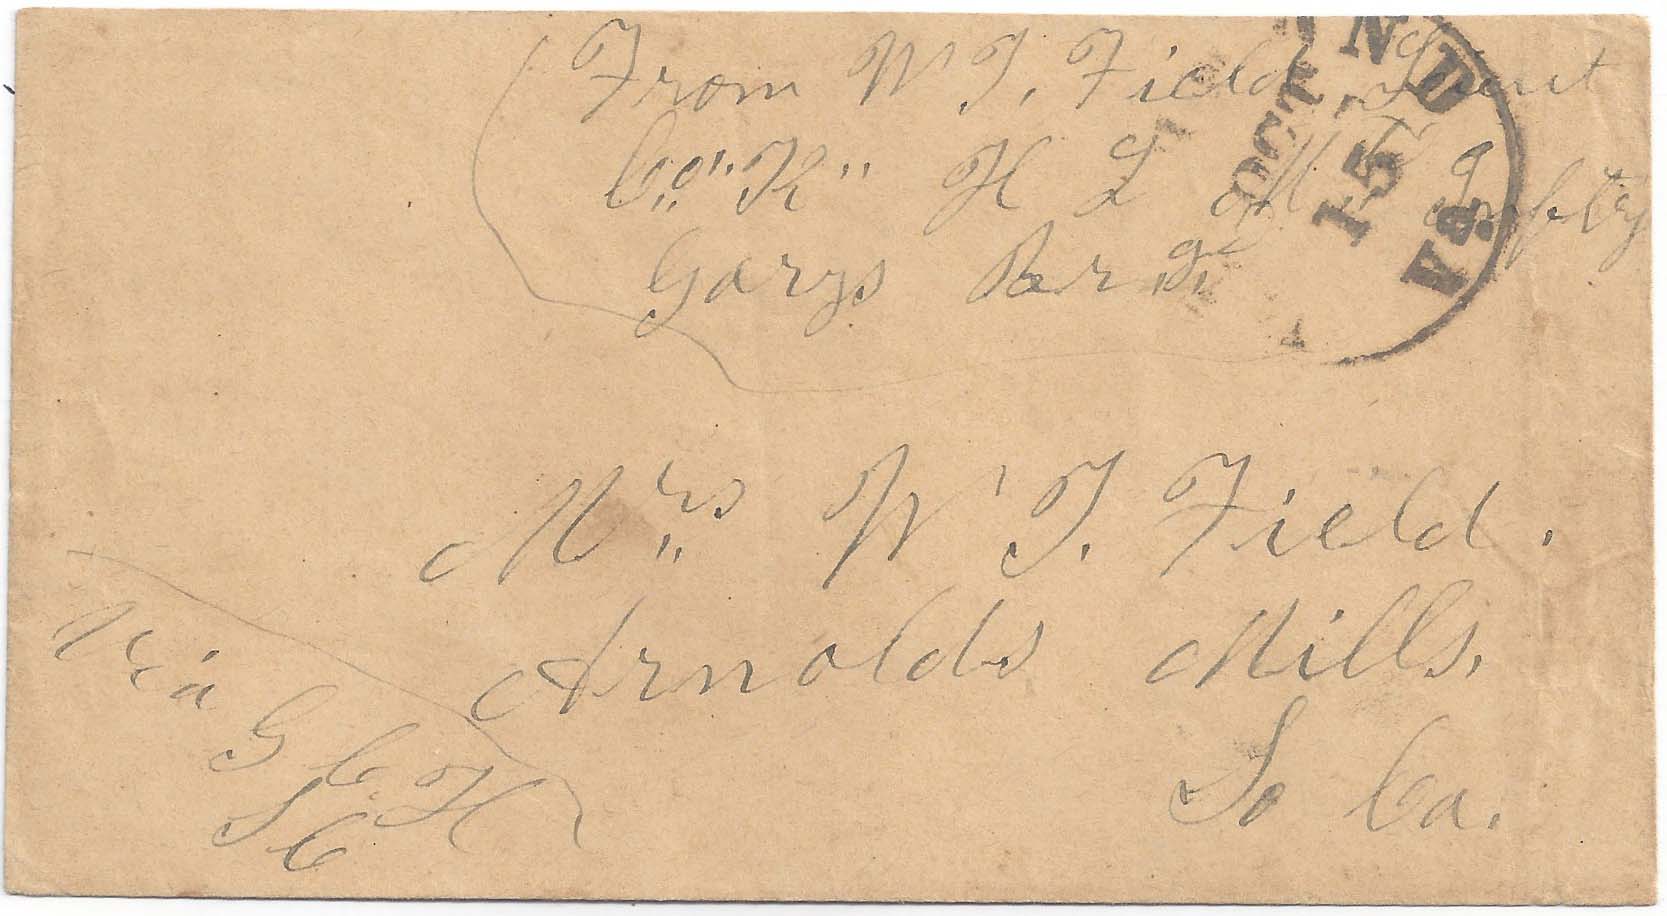 From W T. Field, Lieut
Co. "K" H L Infty
Garys Brig.
OCT
15
Va.
Mrs W T. Field.
Arnolds Mills.
So Ca.
Via
G C H
S C